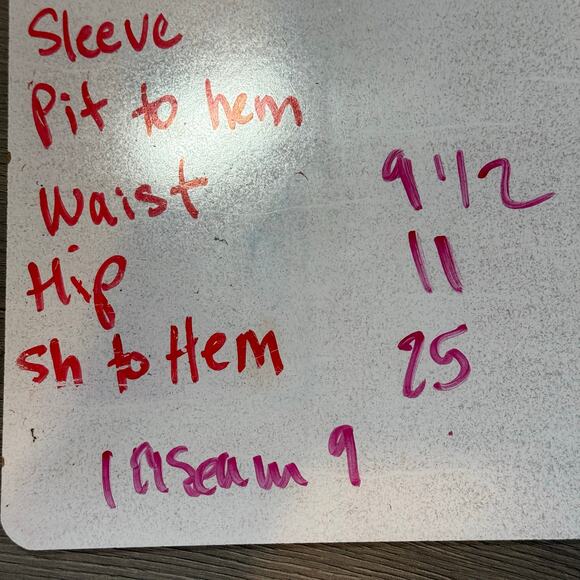 Sleeve
Pit to hem
Waist 9 1/2
Hip 11
Sh to Hem 25
Inseam 9